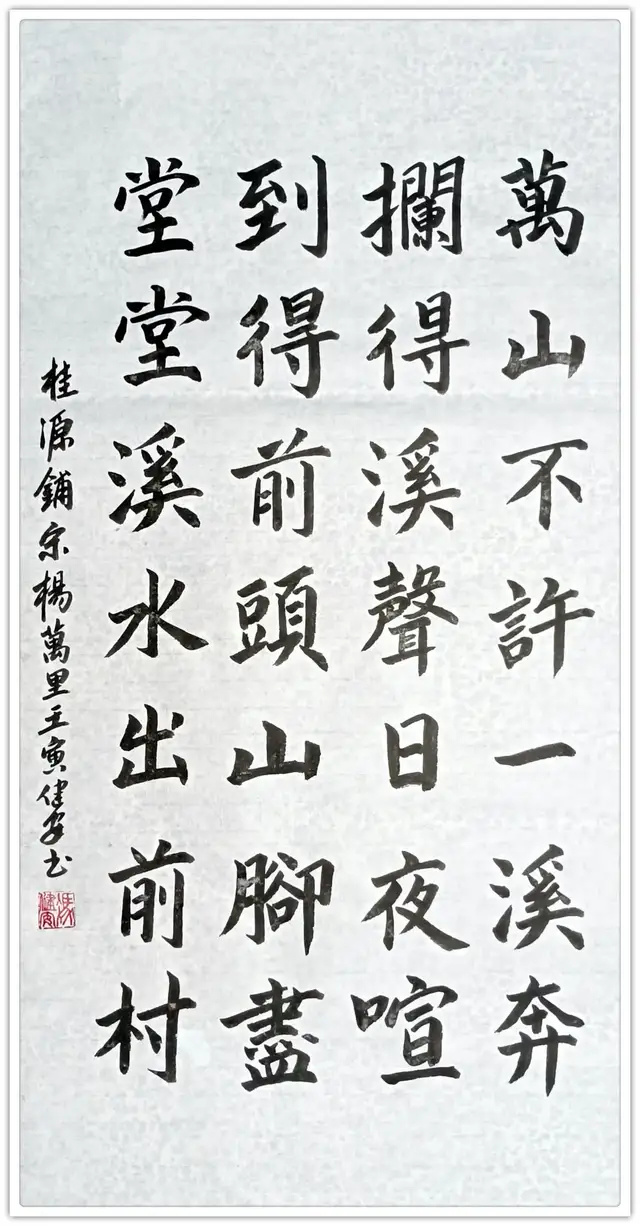 萬山不許一溪奔
攔得溪聲日夜喧
到得前頭山腳盡
堂堂溪水出前村
桂源鋪宋楊萬里壬寅健安书